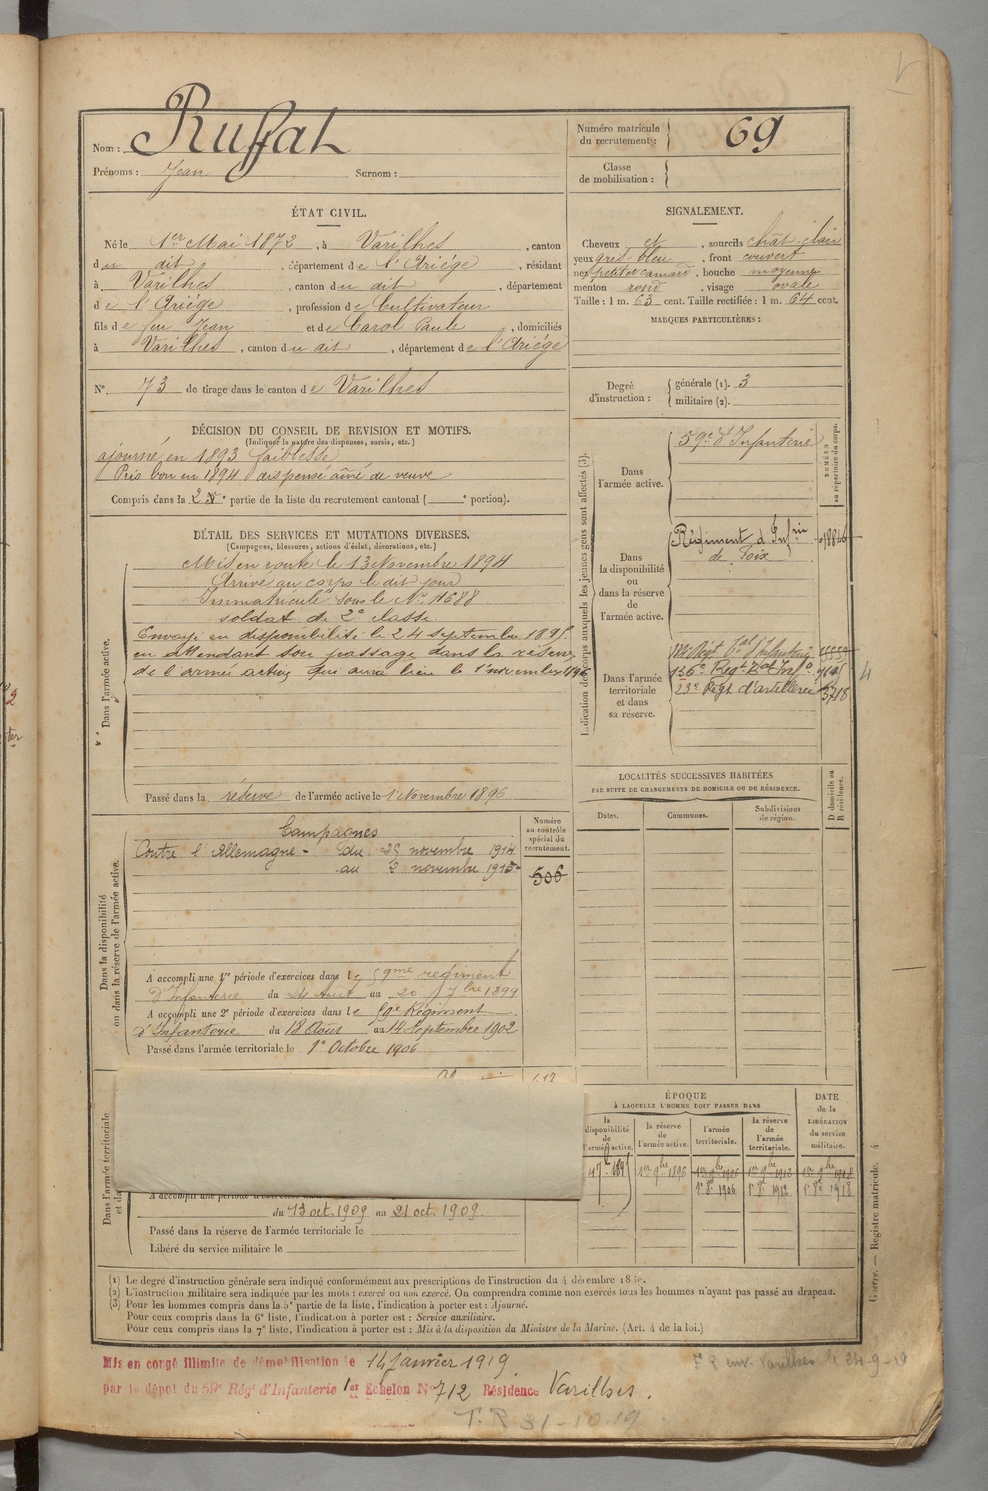 Nom : Ruffat
Prénoms : Jean Surnom :
Numéro matricule du recrutement : 69
Classe de mobilisation :
ÉTAT CIVIL.
Né le 1er Mai 1872, à Varilhes, canton
du dit, département de l'Ariége, résidant
à Varilhes, canton du dit, département
de l'Ariége, profession de Cultivateur
fils de feu Jean et de Carol Paule, domiciliés
à Varilhes, canton du dit, département de l'Ariége
N°. 73 de tirage dans le canton de Varilhes
SIGNALEMENT.
Cheveux et, sourcils chât. clair
yeux gris bleu, front couvert
nez petit et camard, bouche moyenne
menton rond, visage ovale
Taille : 1 m. 63 cent. Taille rectifiée : 1 m. 64 cent.
MARQUES PARTICULIÈRES :
Degré d'instruction : générale (1). 3
militaire (2).
DÉCISION DU CONSEIL DE REVISION ET MOTIFS.
(Indiquer la nature des dispenses, sursis, etc.)
ajourné en 1893 faiblesse
Pris bon en 1894 dispensé aîné de veuve
Compris dans la 2e partie de la liste du recrutement cantonal ( e portion).
DÉTAIL DES SERVICES ET MUTATIONS DIVERSES.
(Campagnes, blessures, actions d'éclat, décorations, etc.)
Dans l'armée active.
Mis en route le 13 Novembre 1894
Arrivé au corps le dit jour
Immatriculé sous le N° 11688
soldat de 2e classe
Envoyé en disponibilité le 24 septembre 1895
en attendant son passage dans la réserve
de l'armée active qui aura lieu le 1er novembre 1896
Passé dans la réserve de l'armée active le 1 Novembre 1896
Indication des corps auxquels les jeunes gens sont affectés (3).
NUMÉRO au répertoire du corps.
Dans l'armée active.
59e d'Infanterie
Dans la disponibilité ou dans la réserve de l'armée active.
Régiment d'Infrie
de Foix
Dans l'armée territoriale et dans sa réserve.
136e Regt Tal Infie
23e Regt d'artillerie 3718
4
LOCALITÉS SUCCESSIVES HABITÉES
PAR SUITE DE CHANGEMENTS DE DOMICILE OU DE RÉSIDENCE.
Dates. Communes. Subdivisions de région. D domicile ou R résidence.
Dans la disponibilité ou dans la réserve de l'armée active.
Numéro au contrôle spécial du recrutement.
506
Campagnes
Contre l'Allemagne - du 25 novembre 1914
au 2 novembre 1915
A accompli une 1re période d'exercices dans le 59me régiment
D'Infanterie du 24 Août au 20 7bre 1899
A accompli une 2e période d'exercices dans le Régiment
d'Infanterie du 18 Août au 14 Septembre 1902
Passé dans l'armée territoriale le 1er Octobre 1906
Dans l'armée territoriale
A accompli une période d'exercices dans
du 13 oct. 1909 au 21 oct. 1909.
Passé dans la réserve de l'armée territoriale le
Libéré du service militaire le
ÉPOQUE
À LAQUELLE L'HOMME DOIT PASSER DANS
la disponibilité de l'armée active. la réserve de l'armée active. l'armée territoriale. la réserve de l'armée territoriale.
DATE de la LIBÉRATION du service militaire.
1er 9bre 1896 1er 9bre 1906 1er 9bre 1912 1er 9bre 1918
1er 8e 1906 1er 8e 1912 1er 8e 1918
(1) Le degré d'instruction générale sera indiqué conformément aux prescriptions de l'instruction du 4 décembre 18
(2) L'instruction militaire sera indiquée par les mots : exercé ou non exercé. On comprendra comme non exercés tous les hommes n'ayant pas passé au drapeau.
(3) Pour les hommes compris dans la 5e partie de la liste, l'indication à porter est : Ajourné.
Pour ceux compris dans la 6e liste, l'indication à porter est : Service auxiliaire.
Pour ceux compris dans la 7e liste, l'indication à porter est : Mis à la disposition du Ministre de la Marine. (Art. 4 de la loi.)
Guerre. — Registre matricule. 4
Mis en congé illimité de démobilisation le 14 Janvier 1919
par le dépôt du 59e Régt d'Infanterie 1er Echelon N° 712 Résidence Varilhes.
Varilhes le 24-9-19
T. R 31-10-19